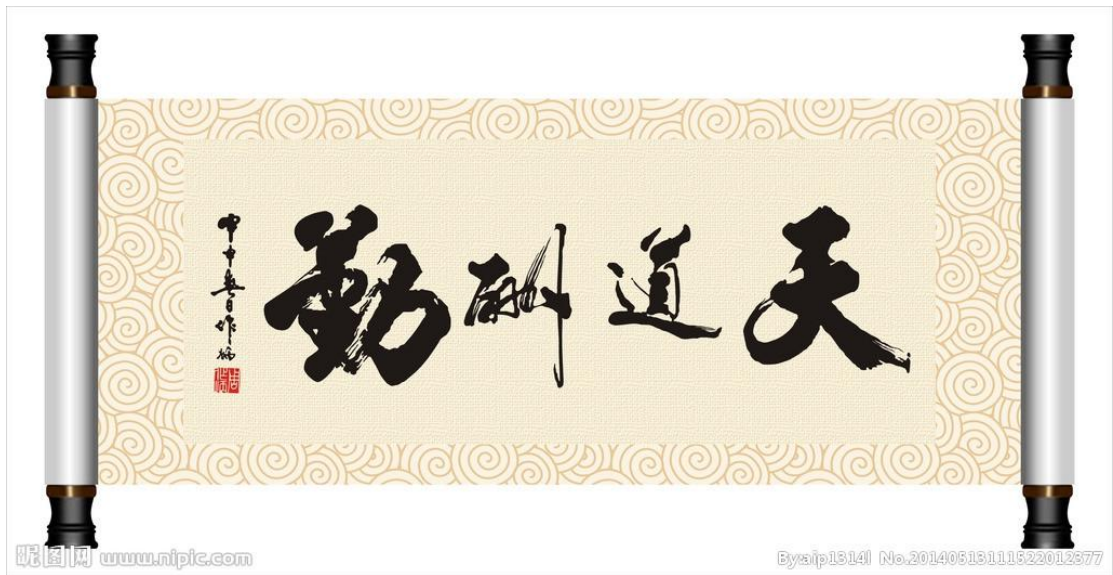 天道酬勤
昵图网 www.nipic.com
By:aip1314l No.20140513111522012377